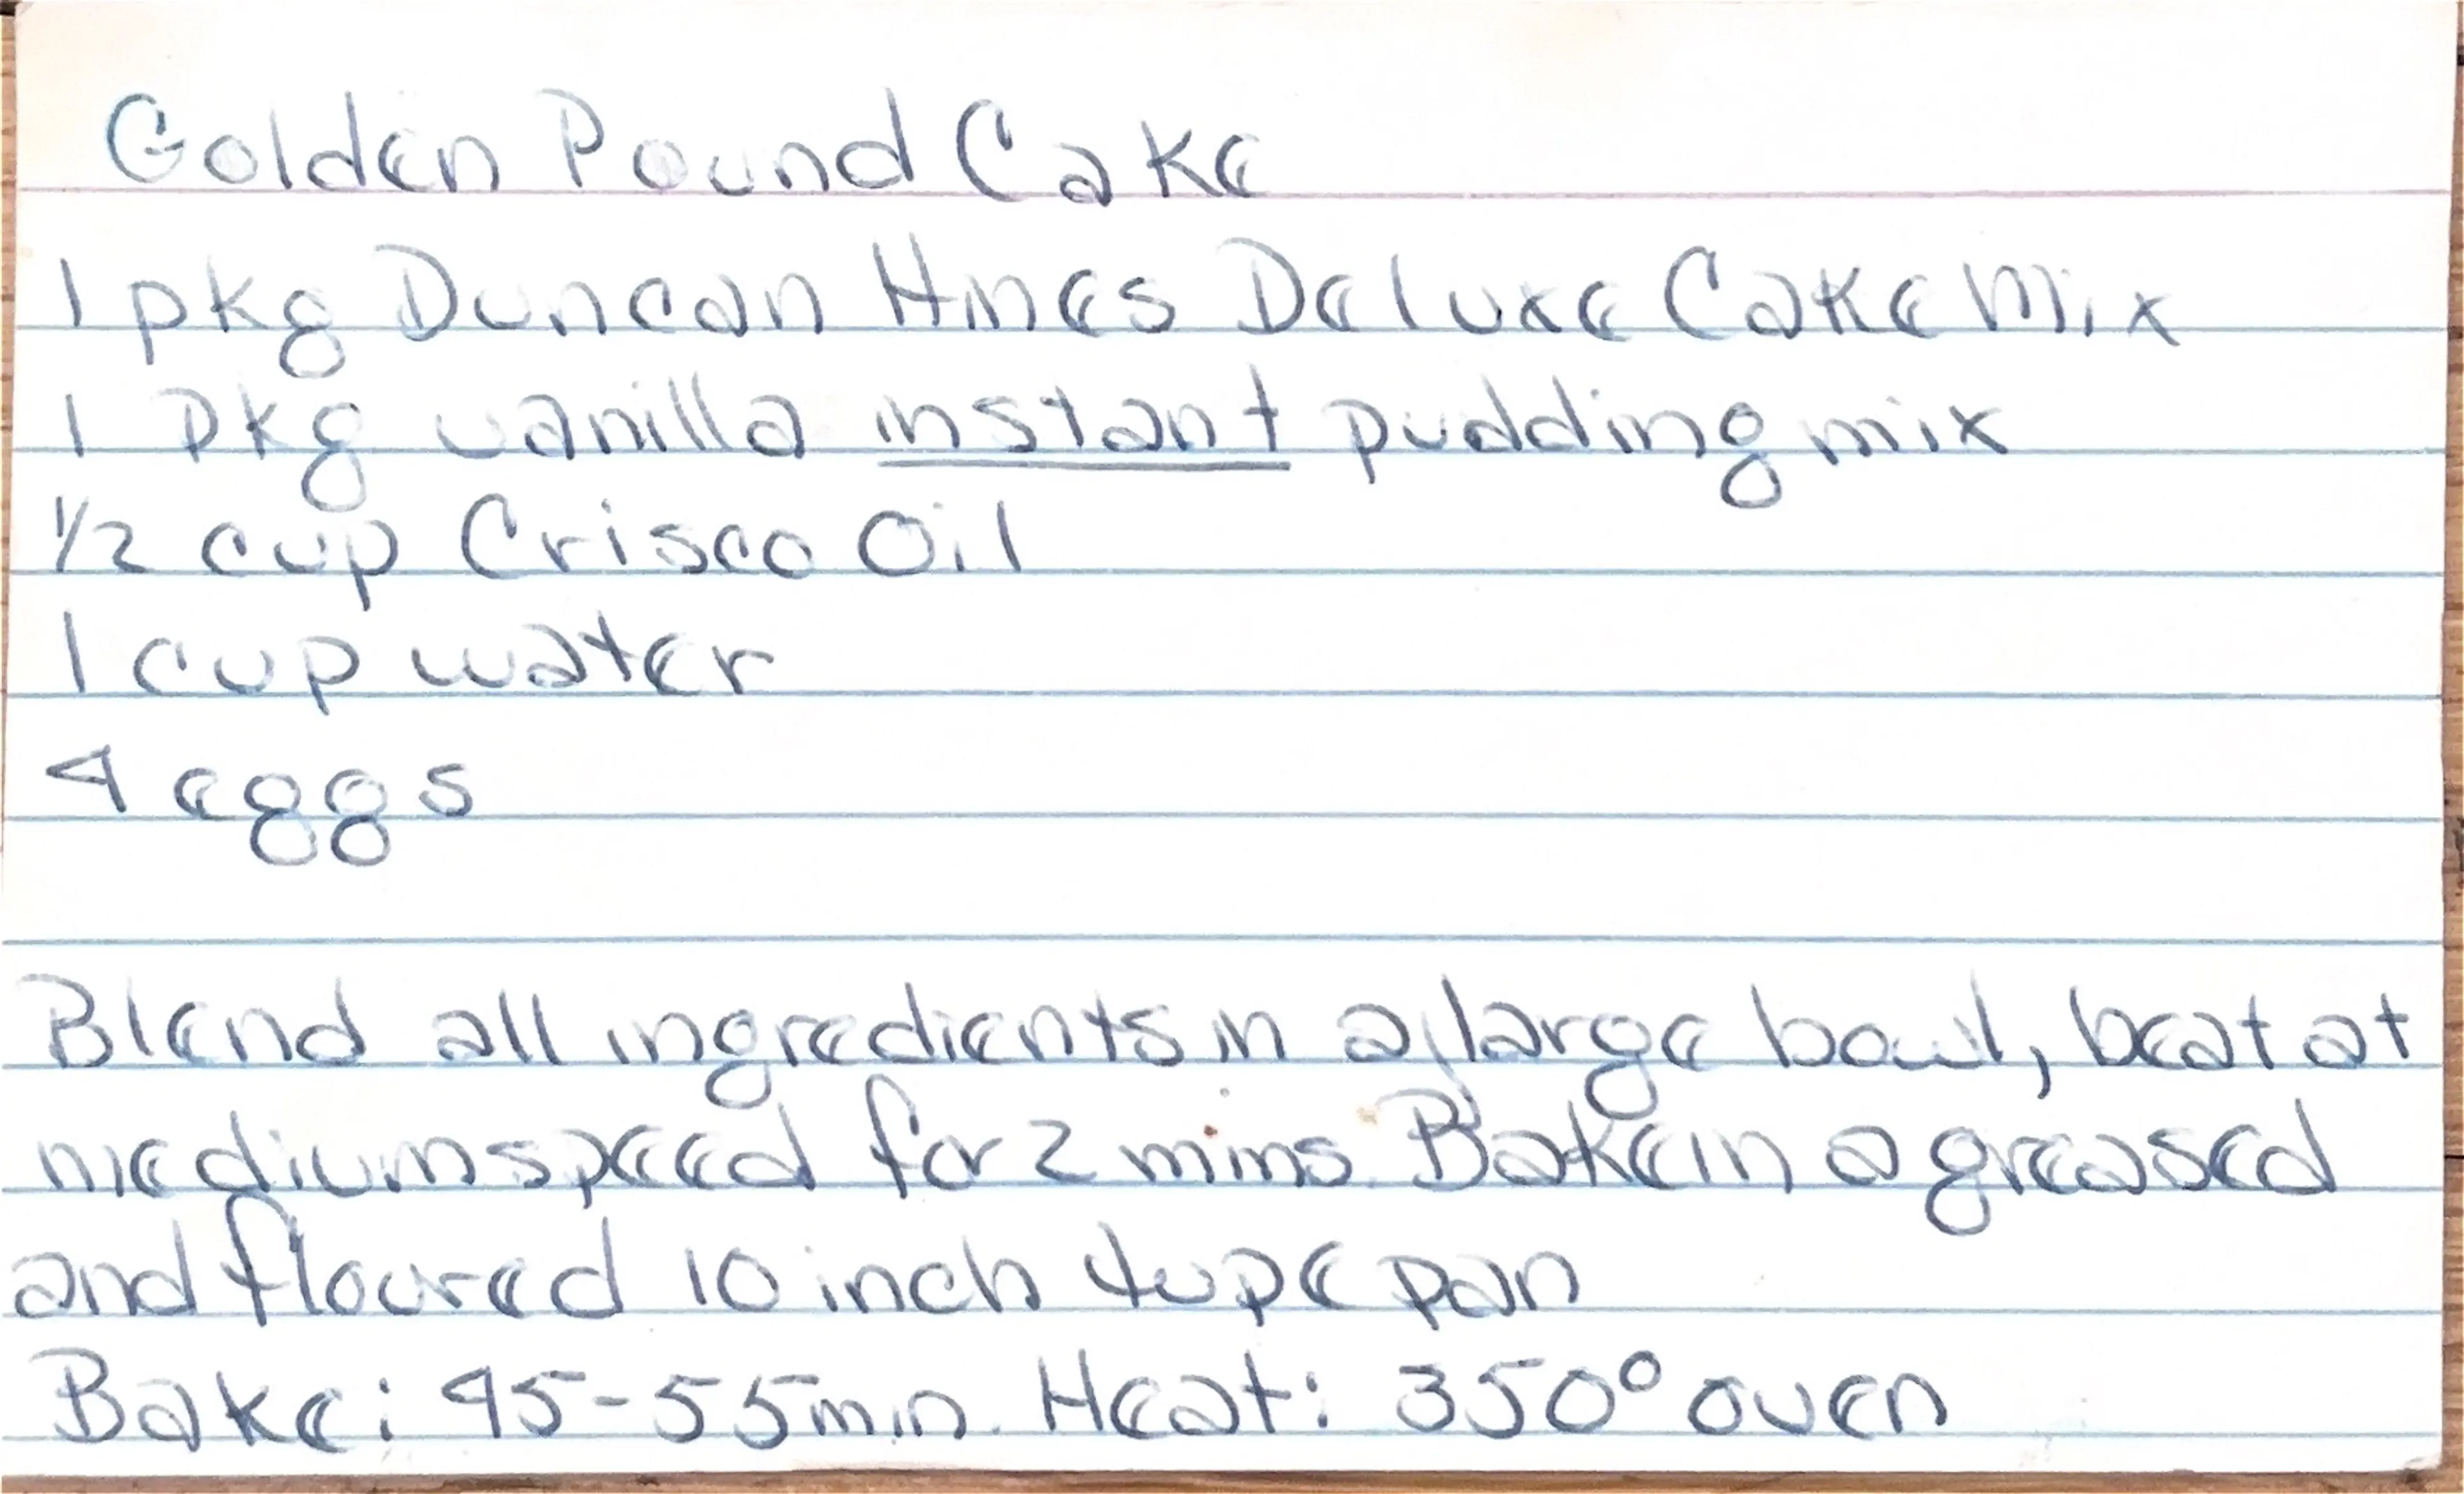 Golden Pound Cake
1 pkg Duncan Hines Deluxe Cake Mix
1 pkg vanilla instant pudding mix
1/2 cup Crisco Oil
1 cup water
4 eggs
Blend all ingredients in a large bowl, beat at
medium speed for 2 mins. Bake in a greased
and floured 10 inch tupe pan
Bake: 45-55 min. Heat: 350° oven